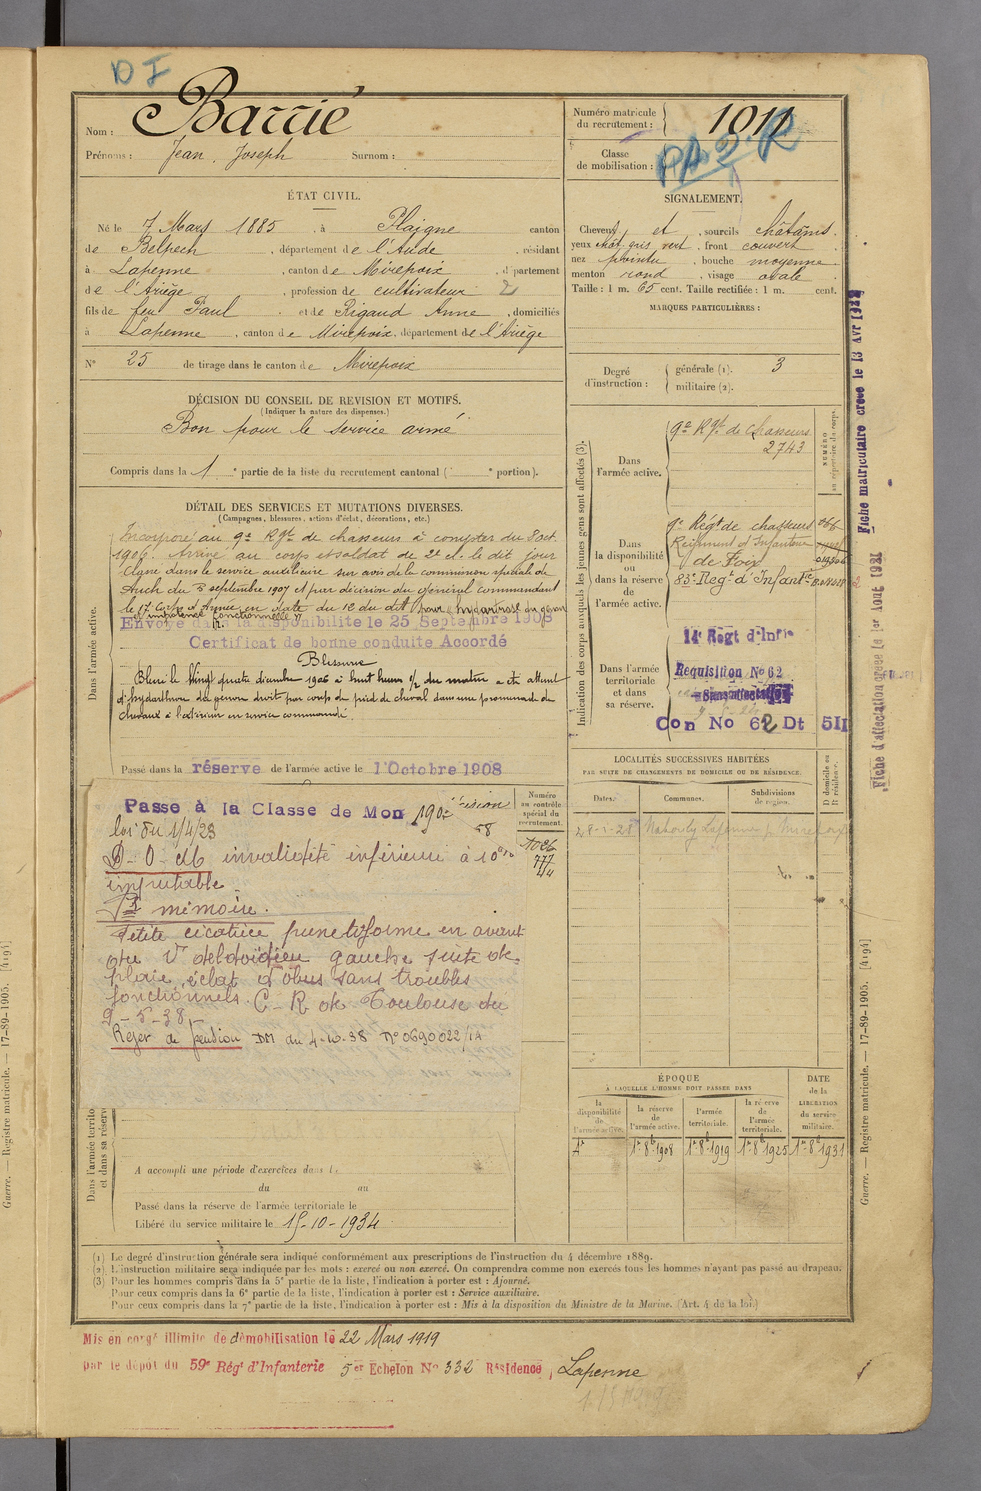 D I
Nom : Barrié
Prénoms : Jean, Joseph Surnom :
Numéro matricule
du recrutement : 1011
Classe
de mobilisation :
PA 2 R
ÉTAT CIVIL.
Né le 7 Mars 1885, à Plaigne canton
de Belpech, département de l'Aude, résidant
à Lapenne, canton de Mirepoix, département
de l'Ariège, profession de cultivateur 2
fils de feu Paul et de Rigaud Anne, domiciliés
à Lapenne, canton de Mirepoix, département de l'Ariège
N° 25 de tirage dans le canton de Mirepoix
SIGNALEMENT.
Cheveux et, sourcils châtains.
yeux chat. gris vert, front couvert
nez pointu, bouche moyenne
menton rond, visage ovale.
Taille : 1 m. 65 cent. Taille rectifiée : 1 m. cent.
MARQUES PARTICULIÈRES :
Degré
d'instruction :
générale (1). 3
militaire (2).
DÉCISION DU CONSEIL DE REVISION ET MOTIFS.
(Indiquer la nature des dispenses.)
Bon pour le service armé
Compris dans la 1e partie de la liste du recrutement cantonal ( e portion).
DÉTAIL DES SERVICES ET MUTATIONS DIVERSES.
(Campagnes, blessures, actions d'éclat, décorations, etc.)
Dans l'armée active.
Incorporé au 9e Rgt de chasseurs à compter du 8 oct.
1906. Arrivé au corps et soldat de 2e cl. le dit jour
Classé dans le service auxiliaire sur avis de la commission spéciale de
Auch du 3 septembre 1907 et par décision du Général commandant
le 17e Corps d'Armée en date du 12 du dit pour hydarthrose du genou
et impotence fonctionnelle
Envoyé dans la disponibilité le 25 Septembre 1908
Certificat de bonne conduite Accordé
Blessure
Blessé le Vingt quatre décembre 1906 à huit heures 1/2 du matin a été atteint
d'hydarthrose du genou droit par coup de pied de cheval dans une promenade de
chevaux à l'extérieur en service commandé.
Passé dans la réserve de l'armée active le 1 Octobre 1908
Indication des corps auxquels les jeunes gens sont affectés (3).
NUMÉRO
au répertoire du corps.
Dans
l'armée active.
9e Rgt de Chasseurs
2743
Dans
la disponibilité
ou
dans la réserve
de
l'armée active.
9e Régt de chasseurs 066
Régiment d'Infanterie
de Foix
83e Regt d'Infantie
Dans l'armée
territoriale
et dans
sa réserve.
14e Regt d'Infie
Requisition No 62
Sans affectation
Con No 62 Dt 5II
Fiche matriculaire creee le 13 Avr
Fiche d'affectation creee le 1er Aout 1931
LOCALITÉS SUCCESSIVES HABITÉES
PAR SUITE DE CHANGEMENTS DE DOMICILE OU DE RÉSIDENCE.
Dates. Communes. Subdivisions
de région.
D domicile ou
R résidence.
Numéro
au contrôle
spécial du
recrutement.
1026
777
Passe à la Classe de Mon 1902
loi du 1/4/23
D-O-M invalidité inférieure à 10%
imputable.
Pr mémoire.
Petite cicatrice punctiforme en avant
du V deltoïdien gauche suite de
plaie, éclat d'obus sans troubles
fonctionnels. C-R de Toulouse du
9-5-38
Rejet de pension DM du 4-10-38 N° 0690022/1A
ÉPOQUE
À LAQUELLE L'HOMME DOIT PASSER DANS
la
disponibilité
de
l'armée active.
la réserve
de
l'armée active.
l'armée
territoriale.
la réserve
de
l'armée
territoriale.
DATE
de la
LIBÉRATION
du service
militaire.
1r 8b 1908 1r 8b 1919 1r 8b 1925 1r 8b 1931
Dans l'armée territo
et dans sa réserv
A accompli une période d'exercices dans l
du au
Passé dans la réserve de l'armée territoriale le
Libéré du service militaire le 15-10-1934
(1) Le degré d'instruction générale sera indiqué conformément aux prescriptions de l'instruction du 4 décembre 1889.
(2) L'instruction militaire sera indiquée par les mots : exercé ou non exercé. On comprendra comme non exercés tous les hommes n'ayant pas passé au drapeau.
(3) Pour les hommes compris dans la 5e partie de la liste, l'indication à porter est : Ajourné.
Pour ceux compris dans la 6e partie de la liste, l'indication à porter est : Service auxiliaire.
Pour ceux compris dans la 7e partie de la liste, l'indication à porter est : Mis à la disposition du Ministre de la Marine. (Art. 4 de la loi.)
Mis en congé illimité de démobilisation le 22 Mars 1919
par le dépôt du 59e Régt d'Infanterie 5er Echelon No 332 Résidence, Lapenne
Guerre. — Registre matricule. — 17-89-1905. [4194]
Guerre. — Registre matricule. — 17-89-1905. [4194]